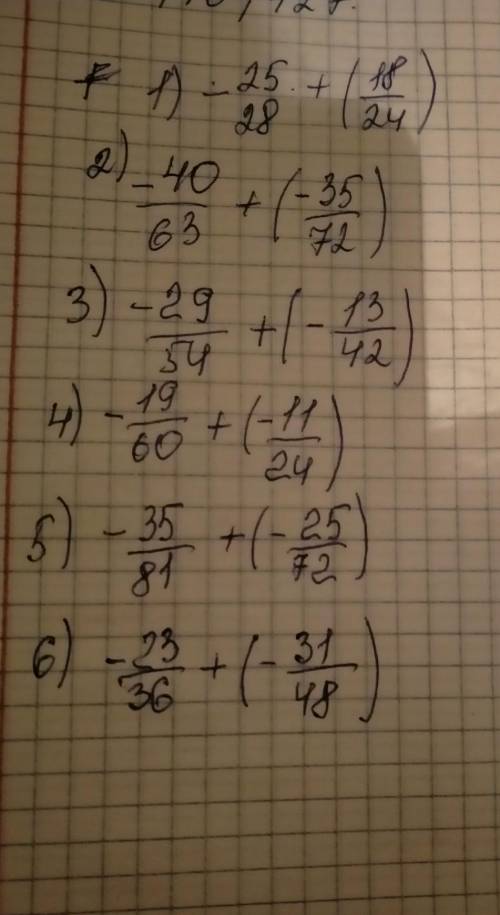 1) -25/28 + (18/24)
2) -40/63 + (-35/72)
3) -29/54 + (-13/42)
4) -19/60 + (-11/24)
5) -35/81 + (-25/72)
6) -23/36 + (-31/48)